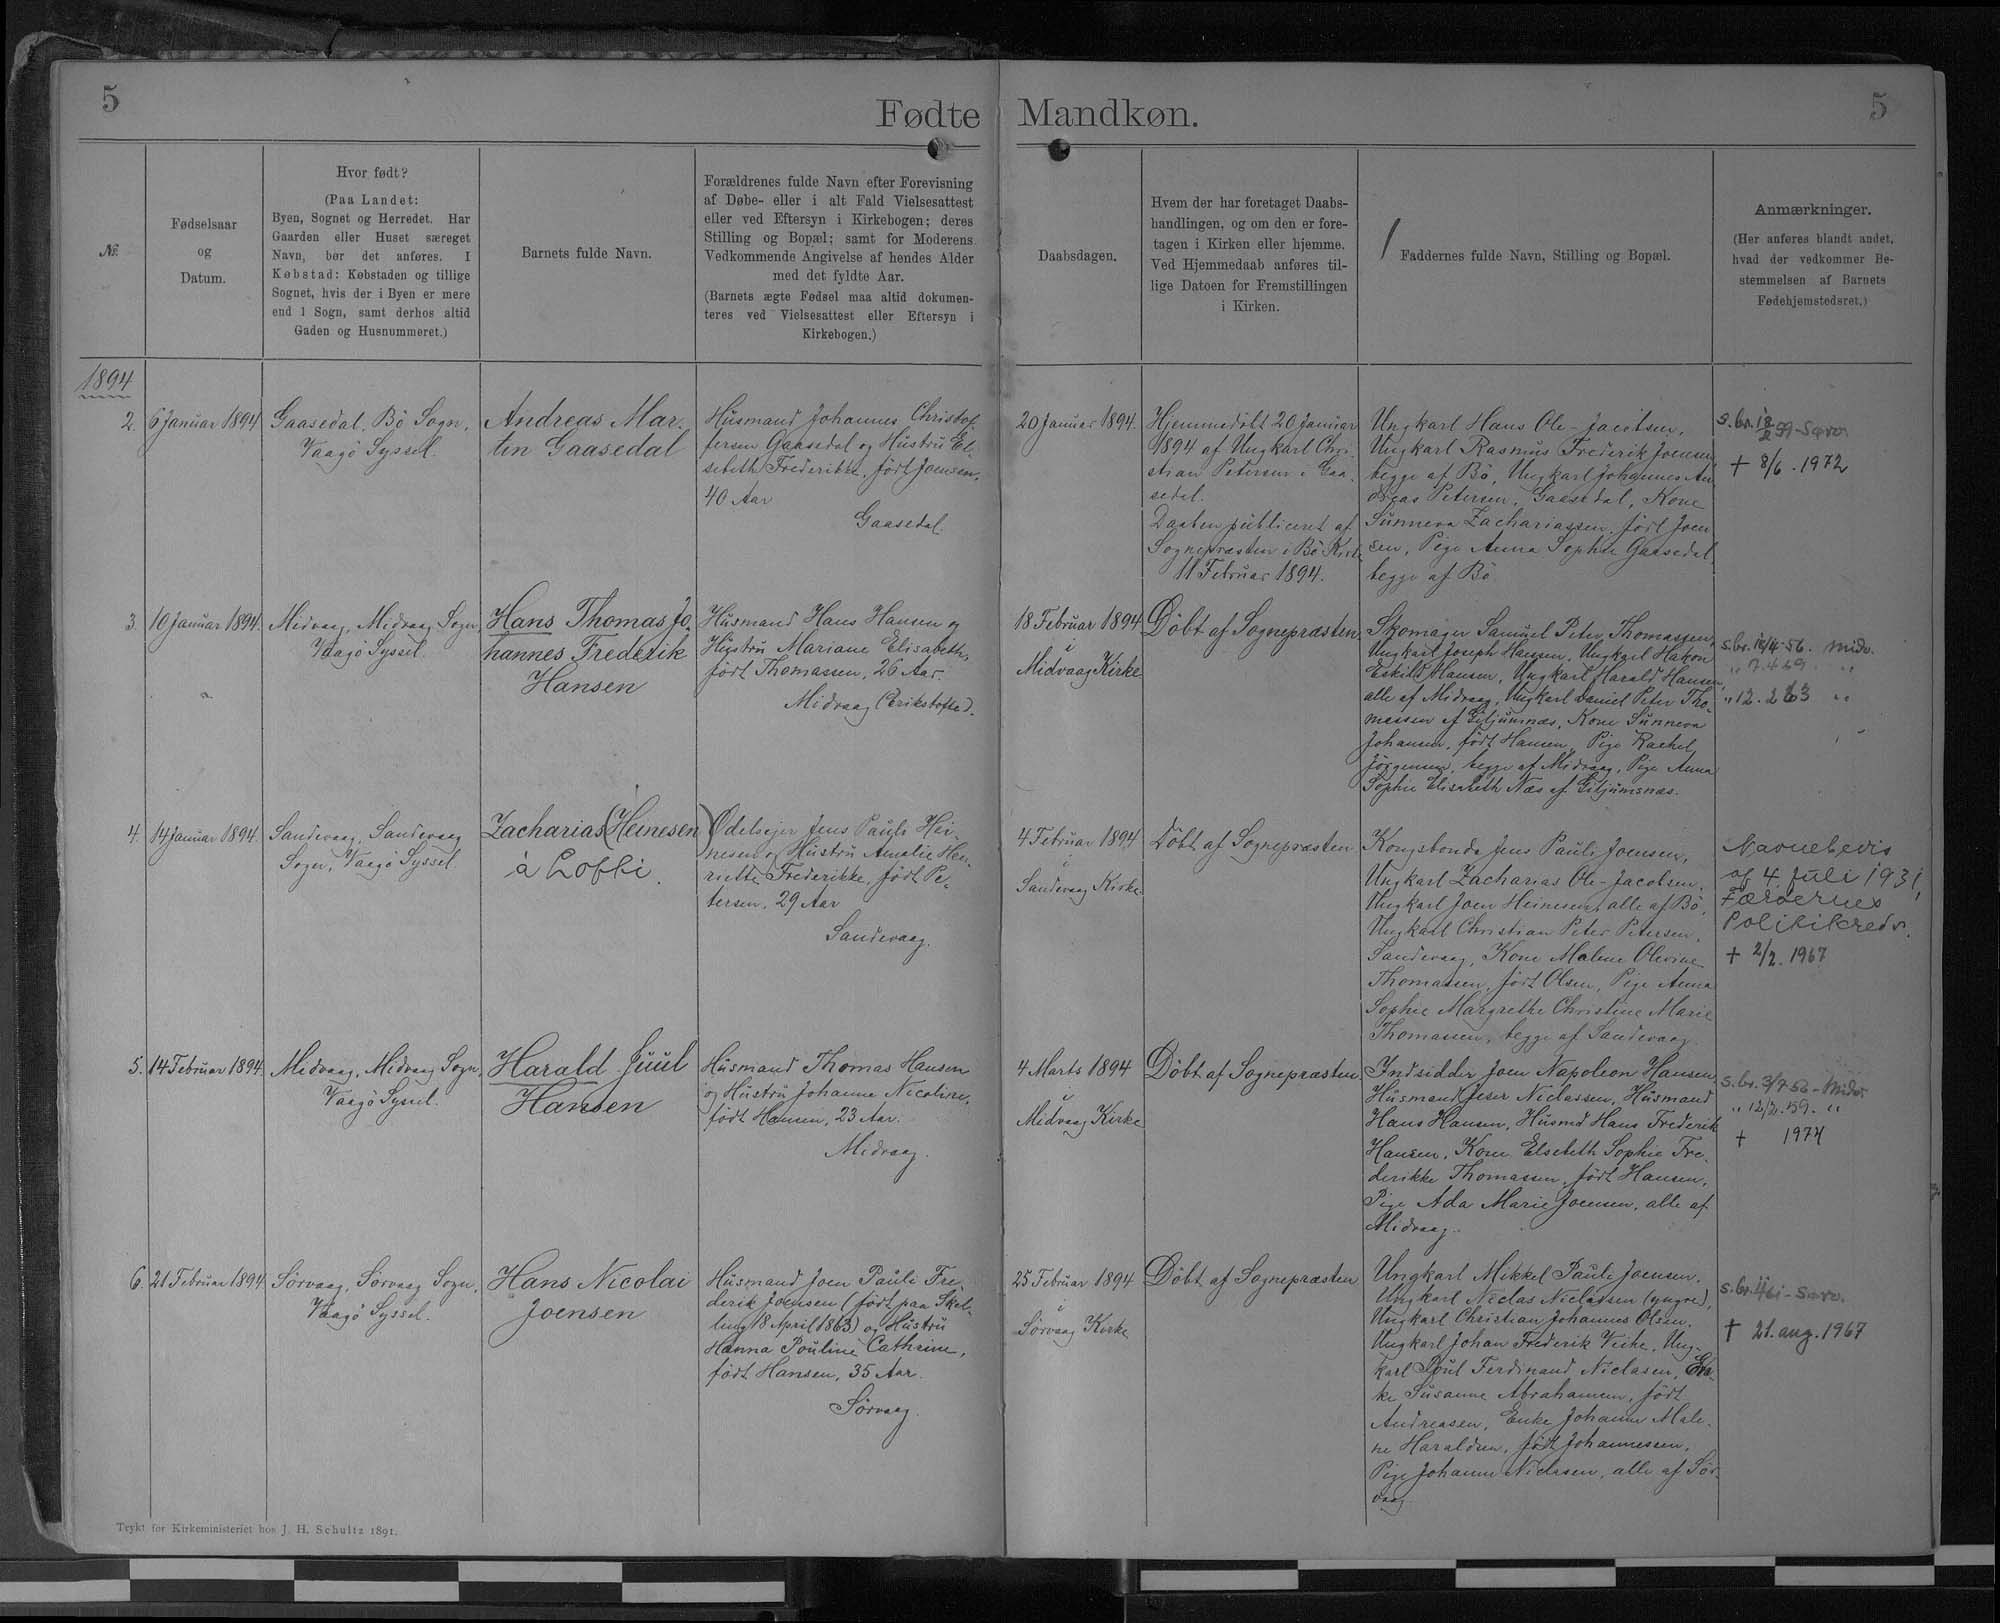 5
Fødte Mandkøn.
5
№
Fødselsaar
og
Datum.
Hvor født?
(Paa Landet:
Byen, Sognet og Herredet. Har
Gaarden eller Huset særeget
Navn, bør det anføres. I
Købstad: Købstaden og tillige
Sognet, hvis der i Byen er mere
end 1 Sogn, samt derhos altid
Gaden og Husnummeret.)
Barnets fulde Navn.
Forældrenes fulde Navn efter Forevisning
af Døbe- eller i alt Fald Vielsesattest
eller ved Eftersyn i Kirkebogen; deres
Stilling og Bopæl; samt for Moderens
Vedkommende Angivelse af hendes Alder
med det fyldte Aar.
(Barnets ægte Fødsel maa altid dokumen-
teres ved Vielsesattest eller Eftersyn i
Kirkebogen.)
Daabsdagen.
Hvem der har foretaget Daabs-
handlingen, og om den er fore-
tagen i Kirken eller hjemme.
Ved Hjemmedaab anføres til-
lige Datoen for Fremstillingen
i Kirken.
Faddernes fulde Navn, Stilling og Bopæl.
Anmærkninger.
(Her anføres blandt andet,
hvad der vedkommer Be-
stemmelsen af Barnets
Fødehjemstedsret.)
1894
2.
6 Januar 1894
Gaasedal, Bö Sogn,
Vaagö Syssel.
Andreas Mar-
tin Gaasedal
Husmand Johannes Christof-
fersen Gaasedal og Hustru El-
sebeth Frederikke, född Joensen,
40 Aar
Gaasedal.
20 Januar 1894.
Hjemmedöbt 20 Januar
1894 af Ungkarl Chri-
stian Petersen i Gaa-
sedal.
Daaben publiceret af
Sognepræsten i Bö Kirke
11 Februar 1894.
Ungkarl Hans Ole-Jacobsen,
Ungkarl Rasmus Frederik Joensen,
begge af Bö, Ungkarl Johannes An-
dreas Petersen, Gaasedal, Kone
Sunneva Zachariassen, född Joen-
sen, Pige Anna Sophie Gaasedal,
begge af Bö.
† 8/6. 1972
3.
10 Januar 1894.
Midvaag, Midvaag Sogn,
Vaagö Syssel.
Hans Thomas Jo-
hannes Frederik
Hansen
Husmand Hans Hansen og
Hustru Mariane Elisabeth,
född Thomassen, 26 Aar.
Midvaag
18 Februar 1894
i
Midvaag Kirke
Döbt af Sognepræsten
Skomager Samuel Peter Thomassen,
Ungkarl Joseph Hansen, Ungkarl Hakon
Eskild Hansen, Ungkarl Harald Hansen,
alle af Midvaag, Ungkarl Daniel Peter Tho-
massen af Giljumnæs, Kone Sunneva
Johansen, född Hansen, Pige Rachel
Jörgensen, begge af Midvaag, Pige Anna
Sophie Elisabeth Næs af Giljumsnæs.
4.
14 Januar 1894.
Sandevaag, Sandevaag
Sogn, Vaagö Syssel.
Zacharias (Heinesen)
á Lofti.
Odelsejer Jens Pauli Hei-
nesen og Hustru Amalie Hen-
riette Frederikke, född Pe-
tersen, 29 Aar
Sandevaag.
4 Februar 1894
i
Sandevaag Kirke
Döbt af Sognepræsten
Kongsbonde Jens Pauli Joensen,
Ungkarl Zacharias Ole-Jacobsen,
Ungkarl Joen Heinesen, alle af Bö,
Ungkarl Christian Peter Petersen,
Sandevaag, Kone Malene Olevine
Thomassen, född Olsen, Pige Anna
Sophie Margrethe Christine Marie
Thomassen, begge af Sandevaag.
Navnebevis
af 4. juli 1931,
Færøernes
Politikreds.
† 2/2. 1967
5.
14 Februar 1894
Midvaag, Midvaag Sogn,
Vaagö Syssel.
Harald Juul
Hansen
Husmand Thomas Hansen
og Hustru Johanna Nicoline,
född Hansen, 23 Aar.
Midvaag.
4 Marts 1894
i
Midvaag Kirke
Döbt af Sognepræsten
Indsidder Joen Napoleon Hansen,
Husmand Jeser Niclassen, Husmand
Hans Hansen, Husmd Hans Frederik
Hansen, Kone Elsebeth Sophie Fre-
derikke Thomassen, född Hansen,
Pige Ada Marie Joensen, alle af
Midvaag.
† 1974
6.
21 Februar 1894
Sörvaag, Sörvaag Sogn,
Vaagö Syssel.
Hans Nicolai
Joensen
Husmand Joen Pauli Fre-
derik Joensen (född paa Skel-
ling 18 April 1863) og Hustru
Hanna Pouline Cathrine,
född Hansen, 35 Aar.
Sörvaag.
25 Februar 1894
i
Sörvaag Kirke
Döbt af Sognepræsten
Ungkarl Mikkel Pauli Joensen,
Ungkarl Niclas Niclassen (yngre),
Ungkarl Christian Johannes Olsen,
Ungkarl Johan Frederik Veihe, Ung-
karl Poul Ferdinand Niclasen, En-
ke Susanne Abrahamsen, född
Andreasen, Enke Johanne Male-
ne Haraldsen, född Johannessen,
Pige Johanne Niclasen, alle af Sör-
vaag.
† 21. aug. 1967
Trykt for Kirkeministeriet hos J. H. Schultz 1891.